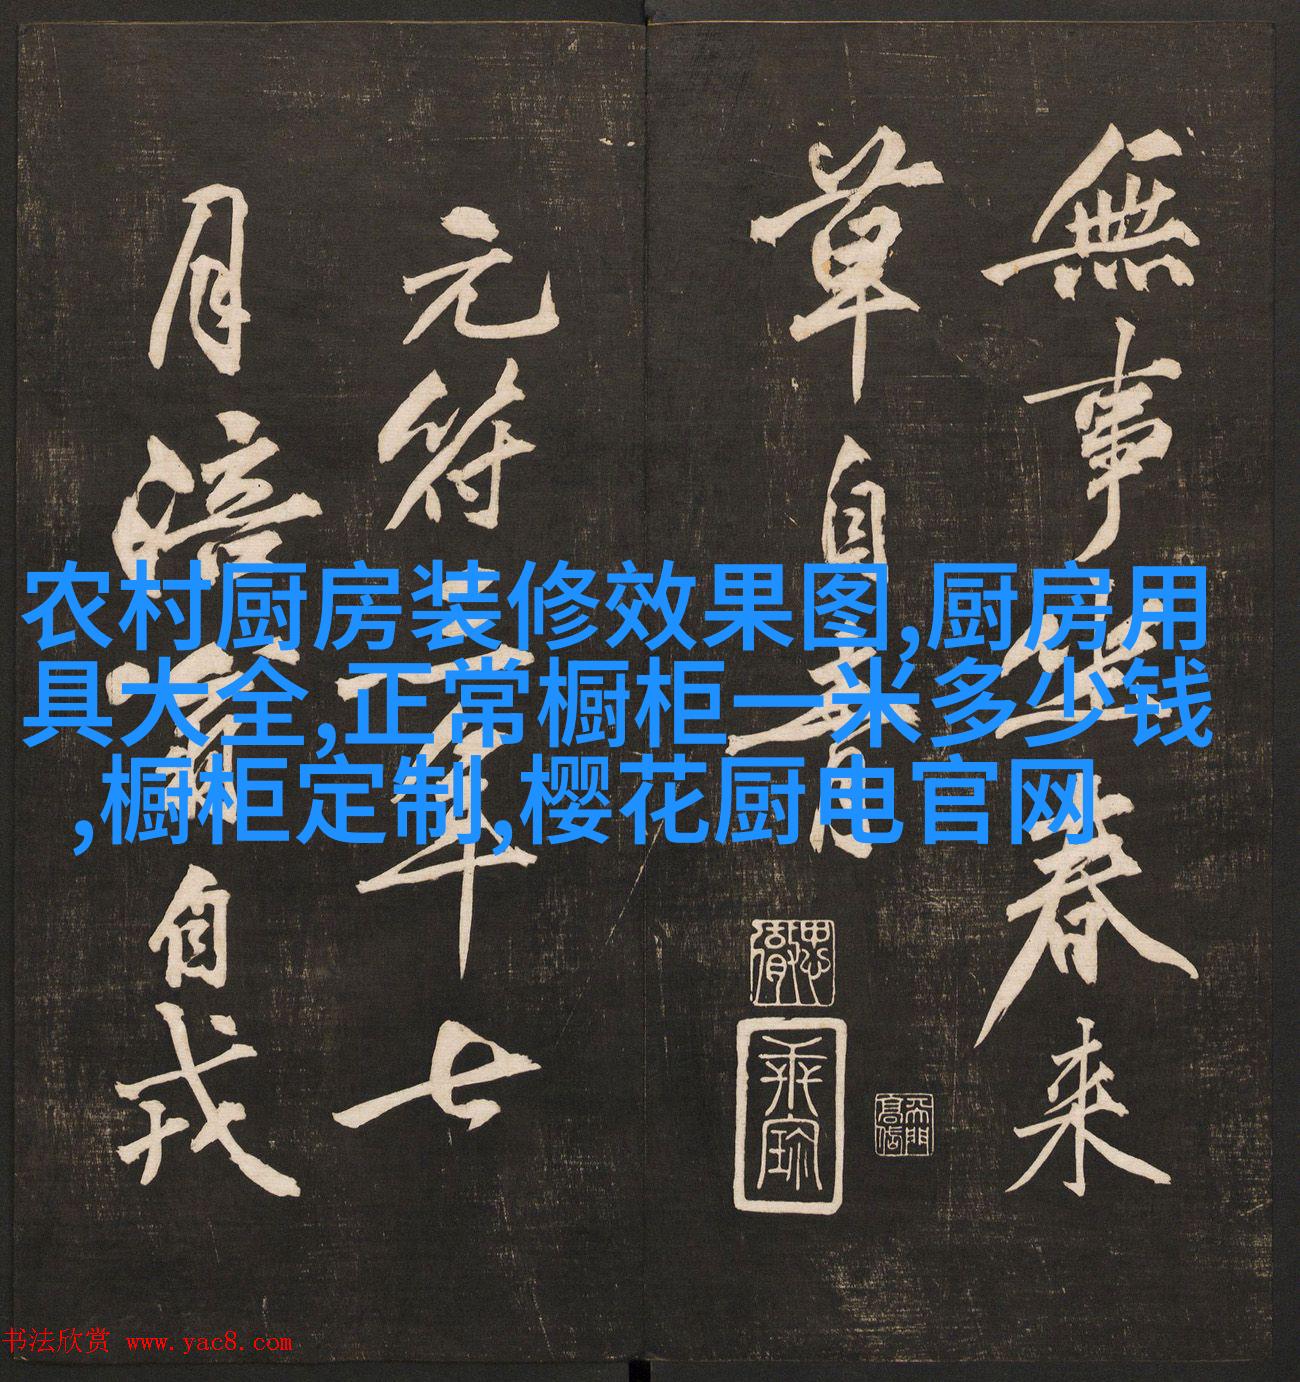 無事坐春来
草自青
元符三年七
月涪翁自戎
农村厨房装修效果图,厨房用
具大全,正常橱柜一米多少钱
,橱柜定制,樱花厨电官网
书法欣赏 www.yac8.com